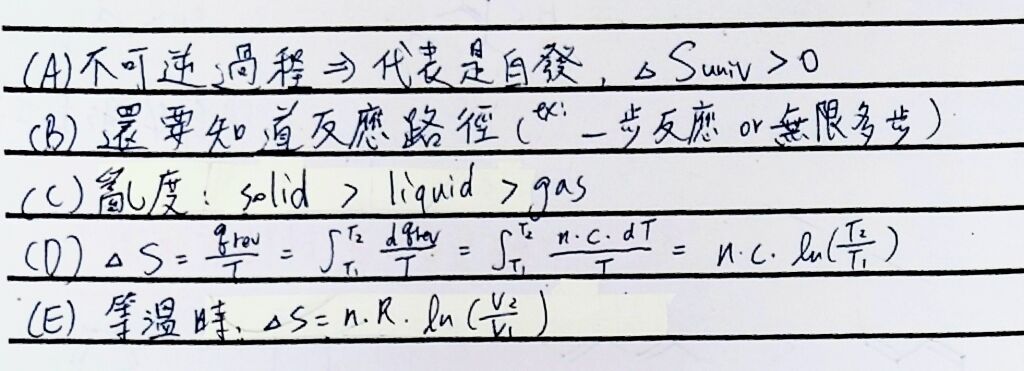 (A)不可逆過程⇒代表是自發, △Suniv>0
(B)還要知道反應路徑(ex: 一步反應 or 無限多步)
(C)亂度: solid > liquid > gas
(D) △S = qrev/T = ∫T1T2 dqrev/T = ∫T1T2 n.c.dT/T = n.c.ln(T2/T1)
(E)等溫時, △S=n.R.ln(V2/V1)